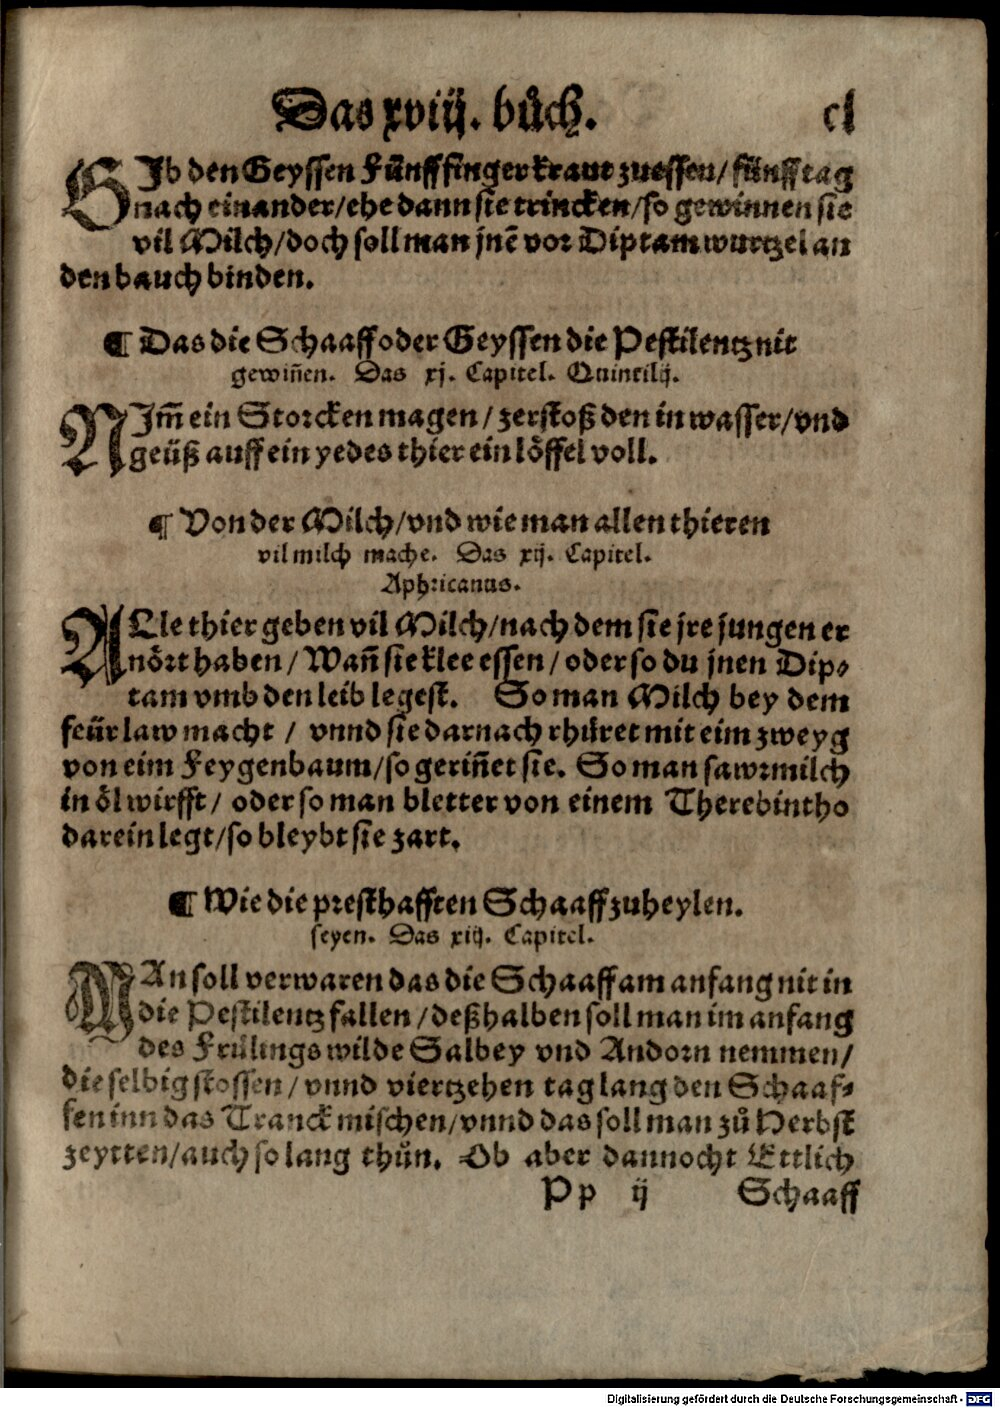 Das xviij. bůch. cl
GIb den Geyssen Fünfffingerkraut zuessen/ fünfftag
nach einander/ ehe dann sie trincken/ so gewinnen sie
vil Milch/ doch soll man jnē vor Diptam wurtzel an
den bauch binden.
¶ Das die Schaaff oder Geyssen die Pestilentz nit
gewiñen. Das xj. Capitel. Quintilij.
NIm̄ ein Storcken magen/ zerstoß den in wasser/ vnd
geüß auff ein yedes thier ein löffel voll.
¶ Von der Milch/ vnd wie man allen thieren
vil milch mache. Das xij. Capitel.
Aphricanus.
ALle thier geben vil Milch/ nach dem sie jre jungen er
nört haben/ Wañ sie klee essen/ oder so du jnen Dip⸗
tam vmb den leib legest. So man Milch bey dem
feür law macht/ vnnd sie darnach rhüret mit eim zweyg
von eim Feygenbaum/ so geriñet sie. So man sawrmilch
in öl wirfft/ oder so man bletter von einem Therebintho
darein legt/ so bleybt sie zart.
¶ Wie die presthafften Schaaff zuheylen.
seyen. Das xiij. Capitel.
MAn soll verwaren das die Schaaff am anfang nit in
die Pestilentz fallen/ deßhalben soll man im anfang
des Frülings wilde Salbey vnd Andorn nemmen/
die selbig stossen/ vnnd viertzehen tag lang den Schaaf⸗
fen inn das Tranck mischen/ vnnd das soll man zů Herbst
zeytten/ auch so lang thůn. Ob aber dannocht Ettlich
Pp ij Schaaff
Digitalisierung gefördert durch die Deutsche Forschungsgemeinschaft - DFG